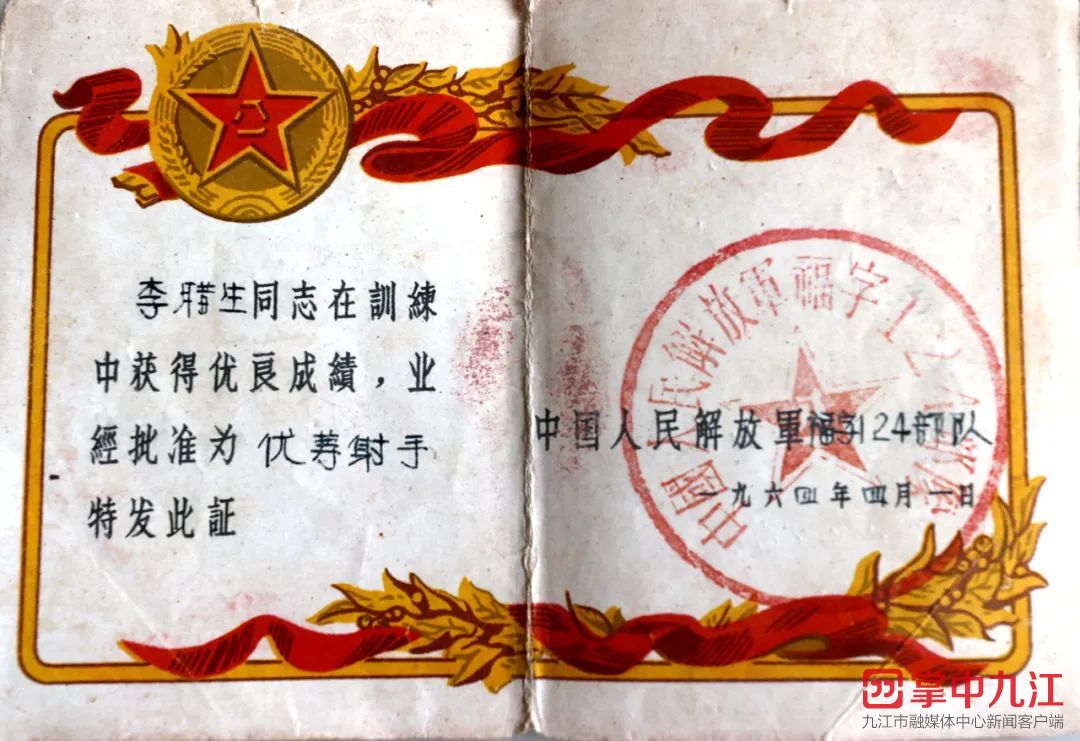 八一
李腊生同志在訓練
中获得优良成績，业
經批准为 优等射手
特发此証
中国人民解放軍福字124部队
一九六四年四月一日
中國人民解放軍福字
掌中九江
九江市融媒体中心新闻客户端